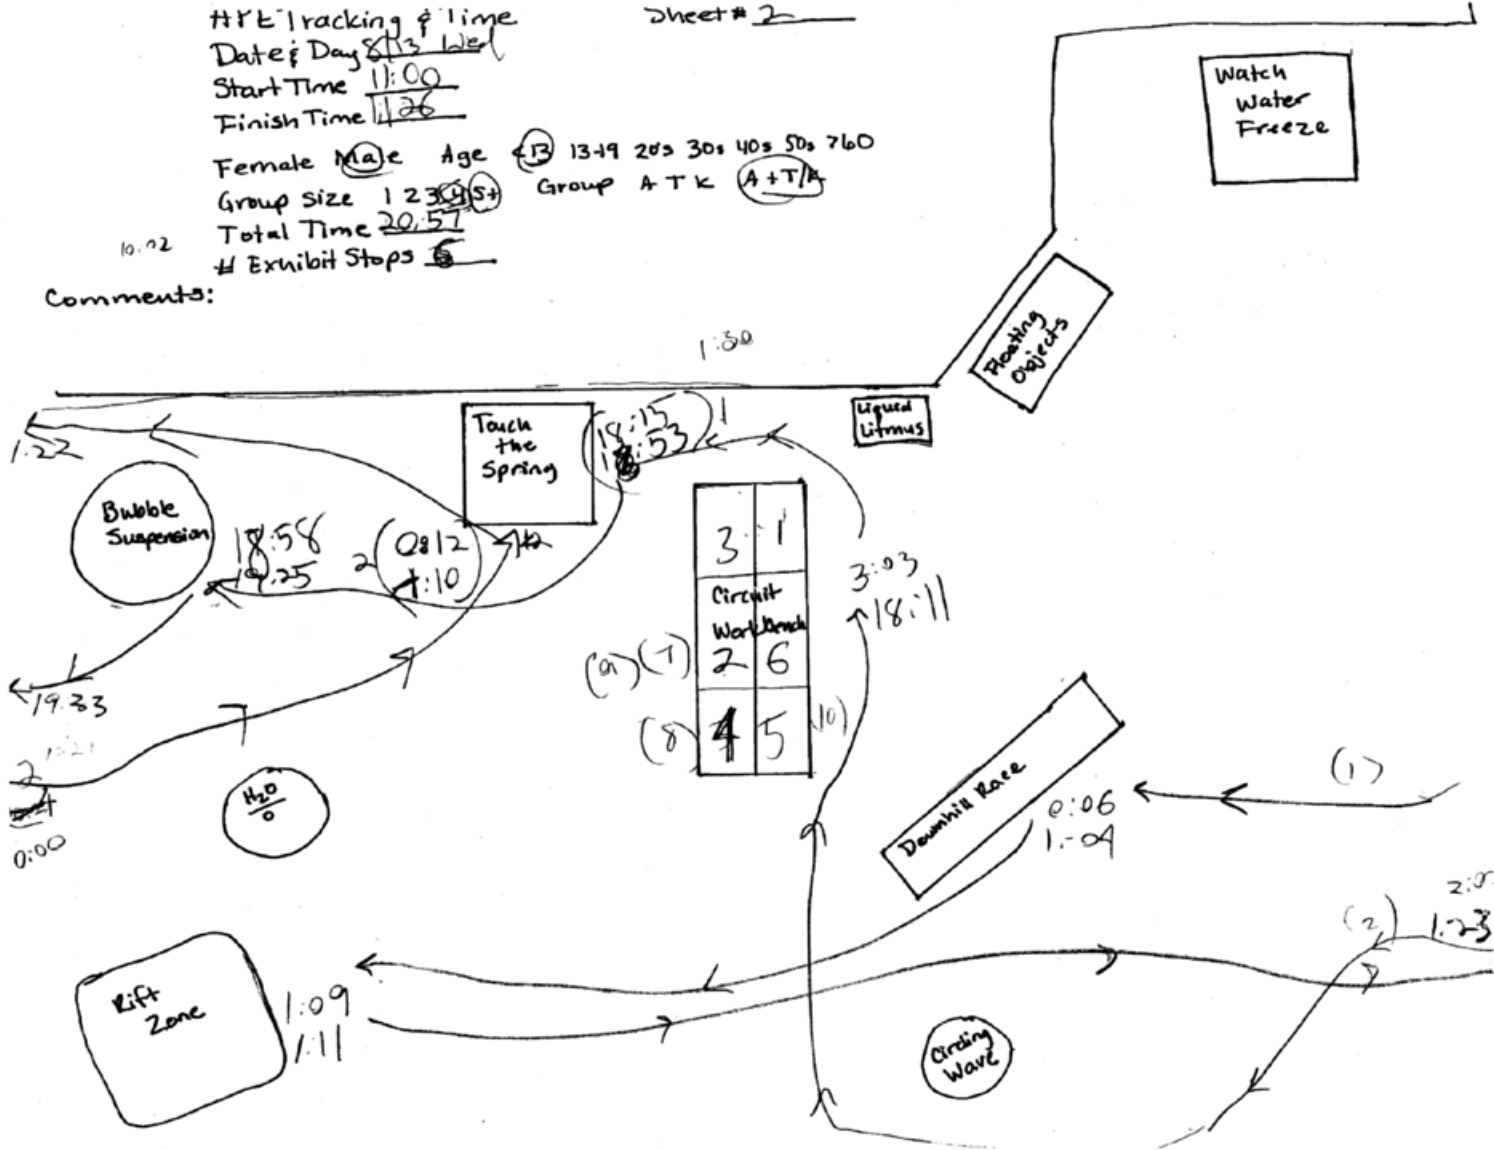 HPL Tracking & Time
Sheet # 2
Date & Day 8/13 Wed
Start Time 11:00
Finish Time 11:26
Female Male Age <13 13-19 20s 30s 40s 50s >60
Group size 1 2 3 4 5+ Group A T K A+T/K
Total Time 20:57
10:02
# Exhibit Stops 6
Comments:
Watch
Water
Freeze
Floating
Objects
1:30
Liquid
Litmus
Touch
the
Spring
18:15
18:53
1
1:22
Bubble
Suspension
18:58
19:25
2
0:12
1:10
3 1
Circuit
Workbench
2 6
(9) (7)
4 5
(8)
(10)
3:03
18:11
19:33
1:21
2
0:00
H2O
0
Downhill Race
0:06
1:04
(1)
(2)
1:23
Rift
Zone
1:09
1:11
Circling
Wave